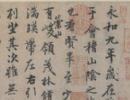 永和九年歲在
于會稽山陰之
也羣賢畢至少
有崇山峻領茂林
湍暎帶左右引
列坐其次雖無